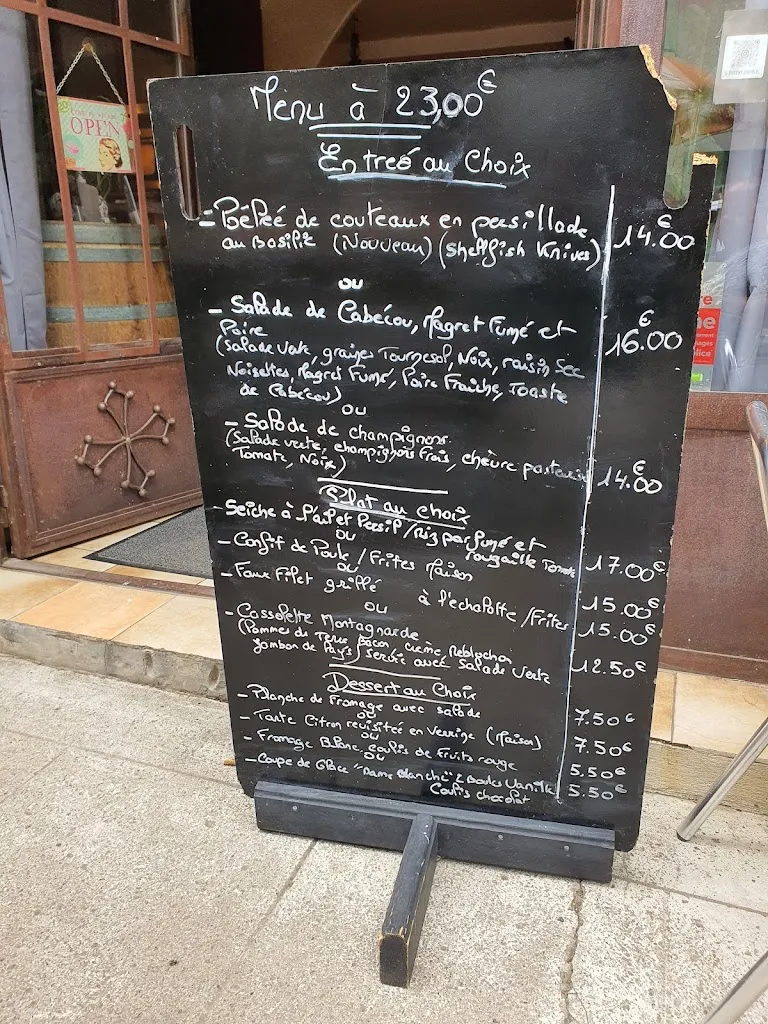 Menu à 23,00€
OPEN
Entreé au Choix
- Poêleé de couteaux en persillade 14.00€
au Basilic (Nouveau) (Shellfish Knives)
ou
- Salade de Cabécou, Magret Fumé et
Poire 16.00€
(Salade verte, graines Tournesol, Noix, raisin Sec
Noisettes, Magret Fumé, Poire Fraîche, Toaste
de Cabécou)
ou
- Salade de champignons.
(Salade verte, champignons Frais, chèvre pasteurisé 14.00€
Tomate, Noix)
Plat au choix
- Seiche à l'ail et Persil / Riz parfumé et
rougaille Tomate 17.00€
ou
- Confit de Poule / Frites Maison 15.00€
ou
- Faux Filet grillé
à l'echalotte / Frites 15.00€
ou
- Cassolette Montagnarde
(Pommes de Terre Bacon crème, Reblochon 12.50€
Jambon de Pays) servie avec Salade Verte
Dessert au Choix
- Planche de Fromage avec salade 7.50€
ou
- Tarte Citron revisiteé en Verrine (Maison) 7.50€
ou
- Fromage Blanc coulis de Fruits rouge 5.50€
ou
- Coupe de Glace "Dame Blanche" 2 Boules Vanille 5.50€
Coulis chocolat